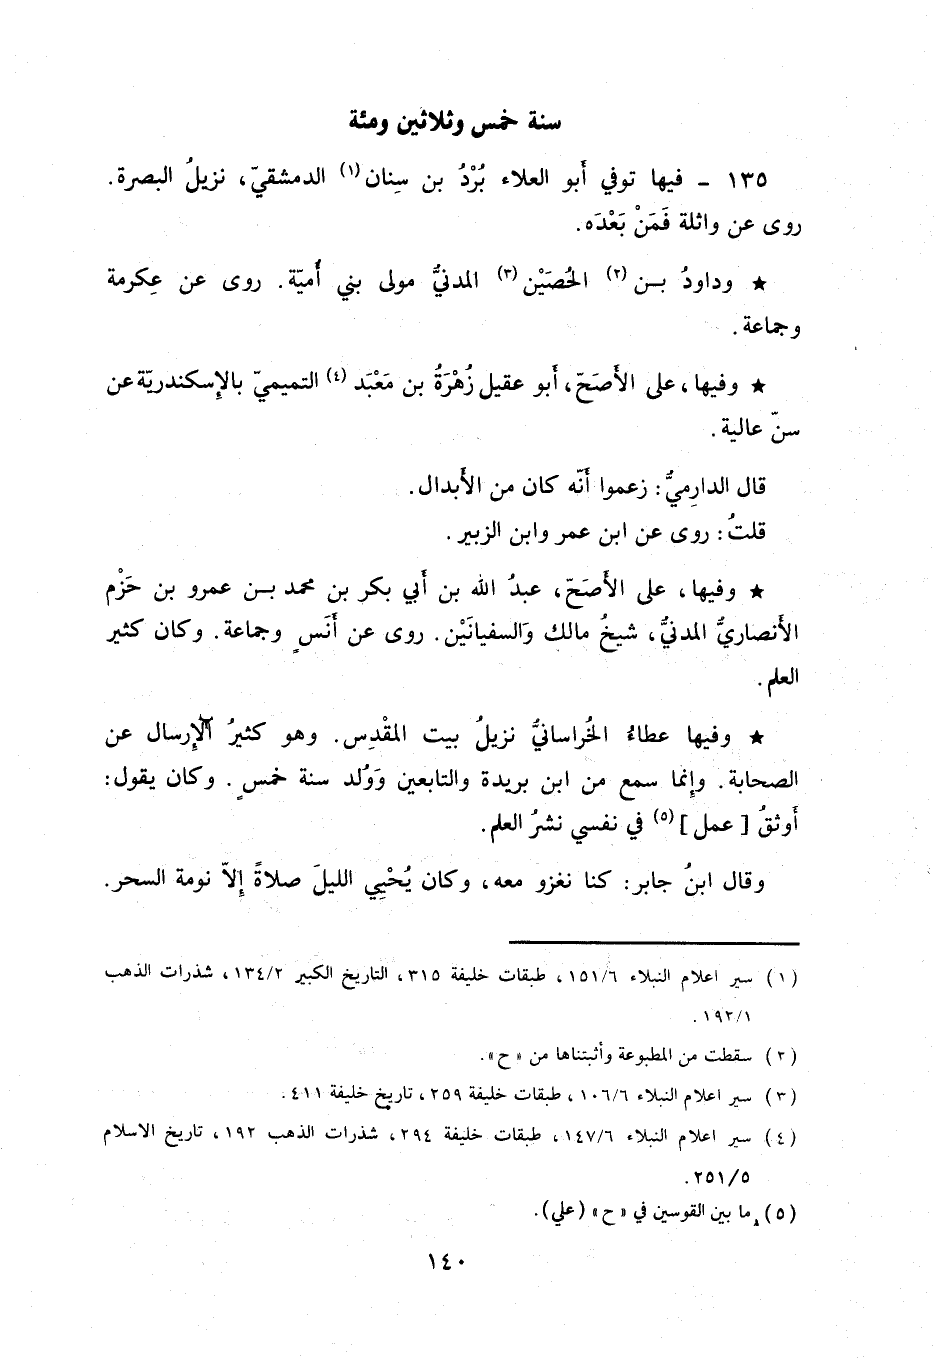 سنة خمس وثلاثين ومئة
١٣٥ - فيها توفي أبو العلاء بُرْدُ بن سِنان(١) الدمشقيّ، نزيلُ البصرة.
روى عن واثلة فَمَنْ بَعْدَه.
★ وداودُ بـن (٢) الحُصَيْن(٣) المدنيُّ مولى بني أُميّة. روى عن عِكرمة
وجماعة.
★ وفيها، على الأَصَحّ، أَبو عقيل زُهْرَةُ بن مَعْبَد (٤) التميميّ بالإِسكندريّة عن
سنّ عالية.
قال الدارِميُّ: زعموا أَنّه كان من الأَبدال.
قلتُ: روى عن ابن عمر وابن الزبير.
★ وفيها، على الأَصَحّ، عبدُ الله بن أَبي بكر بن محمد بـن عمرو بن حَزْم
الأَنصاريُّ المدنيُّ، شيخُ مالك وَالسفيانَيْن. روى عن أَنَسٍ وجماعة. وكان كثير
العلم.
★ وفيها عطاءُ الخُراسانيُّ نزيلُ بيت المقْدِس. وهو كثيرُ الإِرسال عن
الصحابة. وإِنما سمع من ابن بريدة والتابعين وَوُلد سنة خمسٍ. وكان يقول:
أَوثقُ [عمل](٥) في نفسي نشرُ العلم.
وقال ابنُ جابر: كنا نغزو معه، وكان يُحْيِي الليلَ صلاةً إِلاّ نومة السحر.
(١) سير اعلام النبلاء ١٥١/٦، طبقات خليفة ٣١٥، التاريخ الكبير ١٣٤/٢، شذرات الذهب
١٩٢/١.
(٢) سقطت من المطبوعة وأثبتناها من «ح».
(٣) سير اعلام النبلاء ١٠٦/٦، طبقات خليفة ٢٥٩، تاريخ خليفة ٤١١.
(٤) سير اعلام النبلاء ١٤٧/٦، طبقات خليفة ٢٩٤، شذرات الذهب ١٩٢، تاريخ الاسلام
٢٥١/٥.
(٥) ما بين القوسين في «ح» (علي).
١٤٠